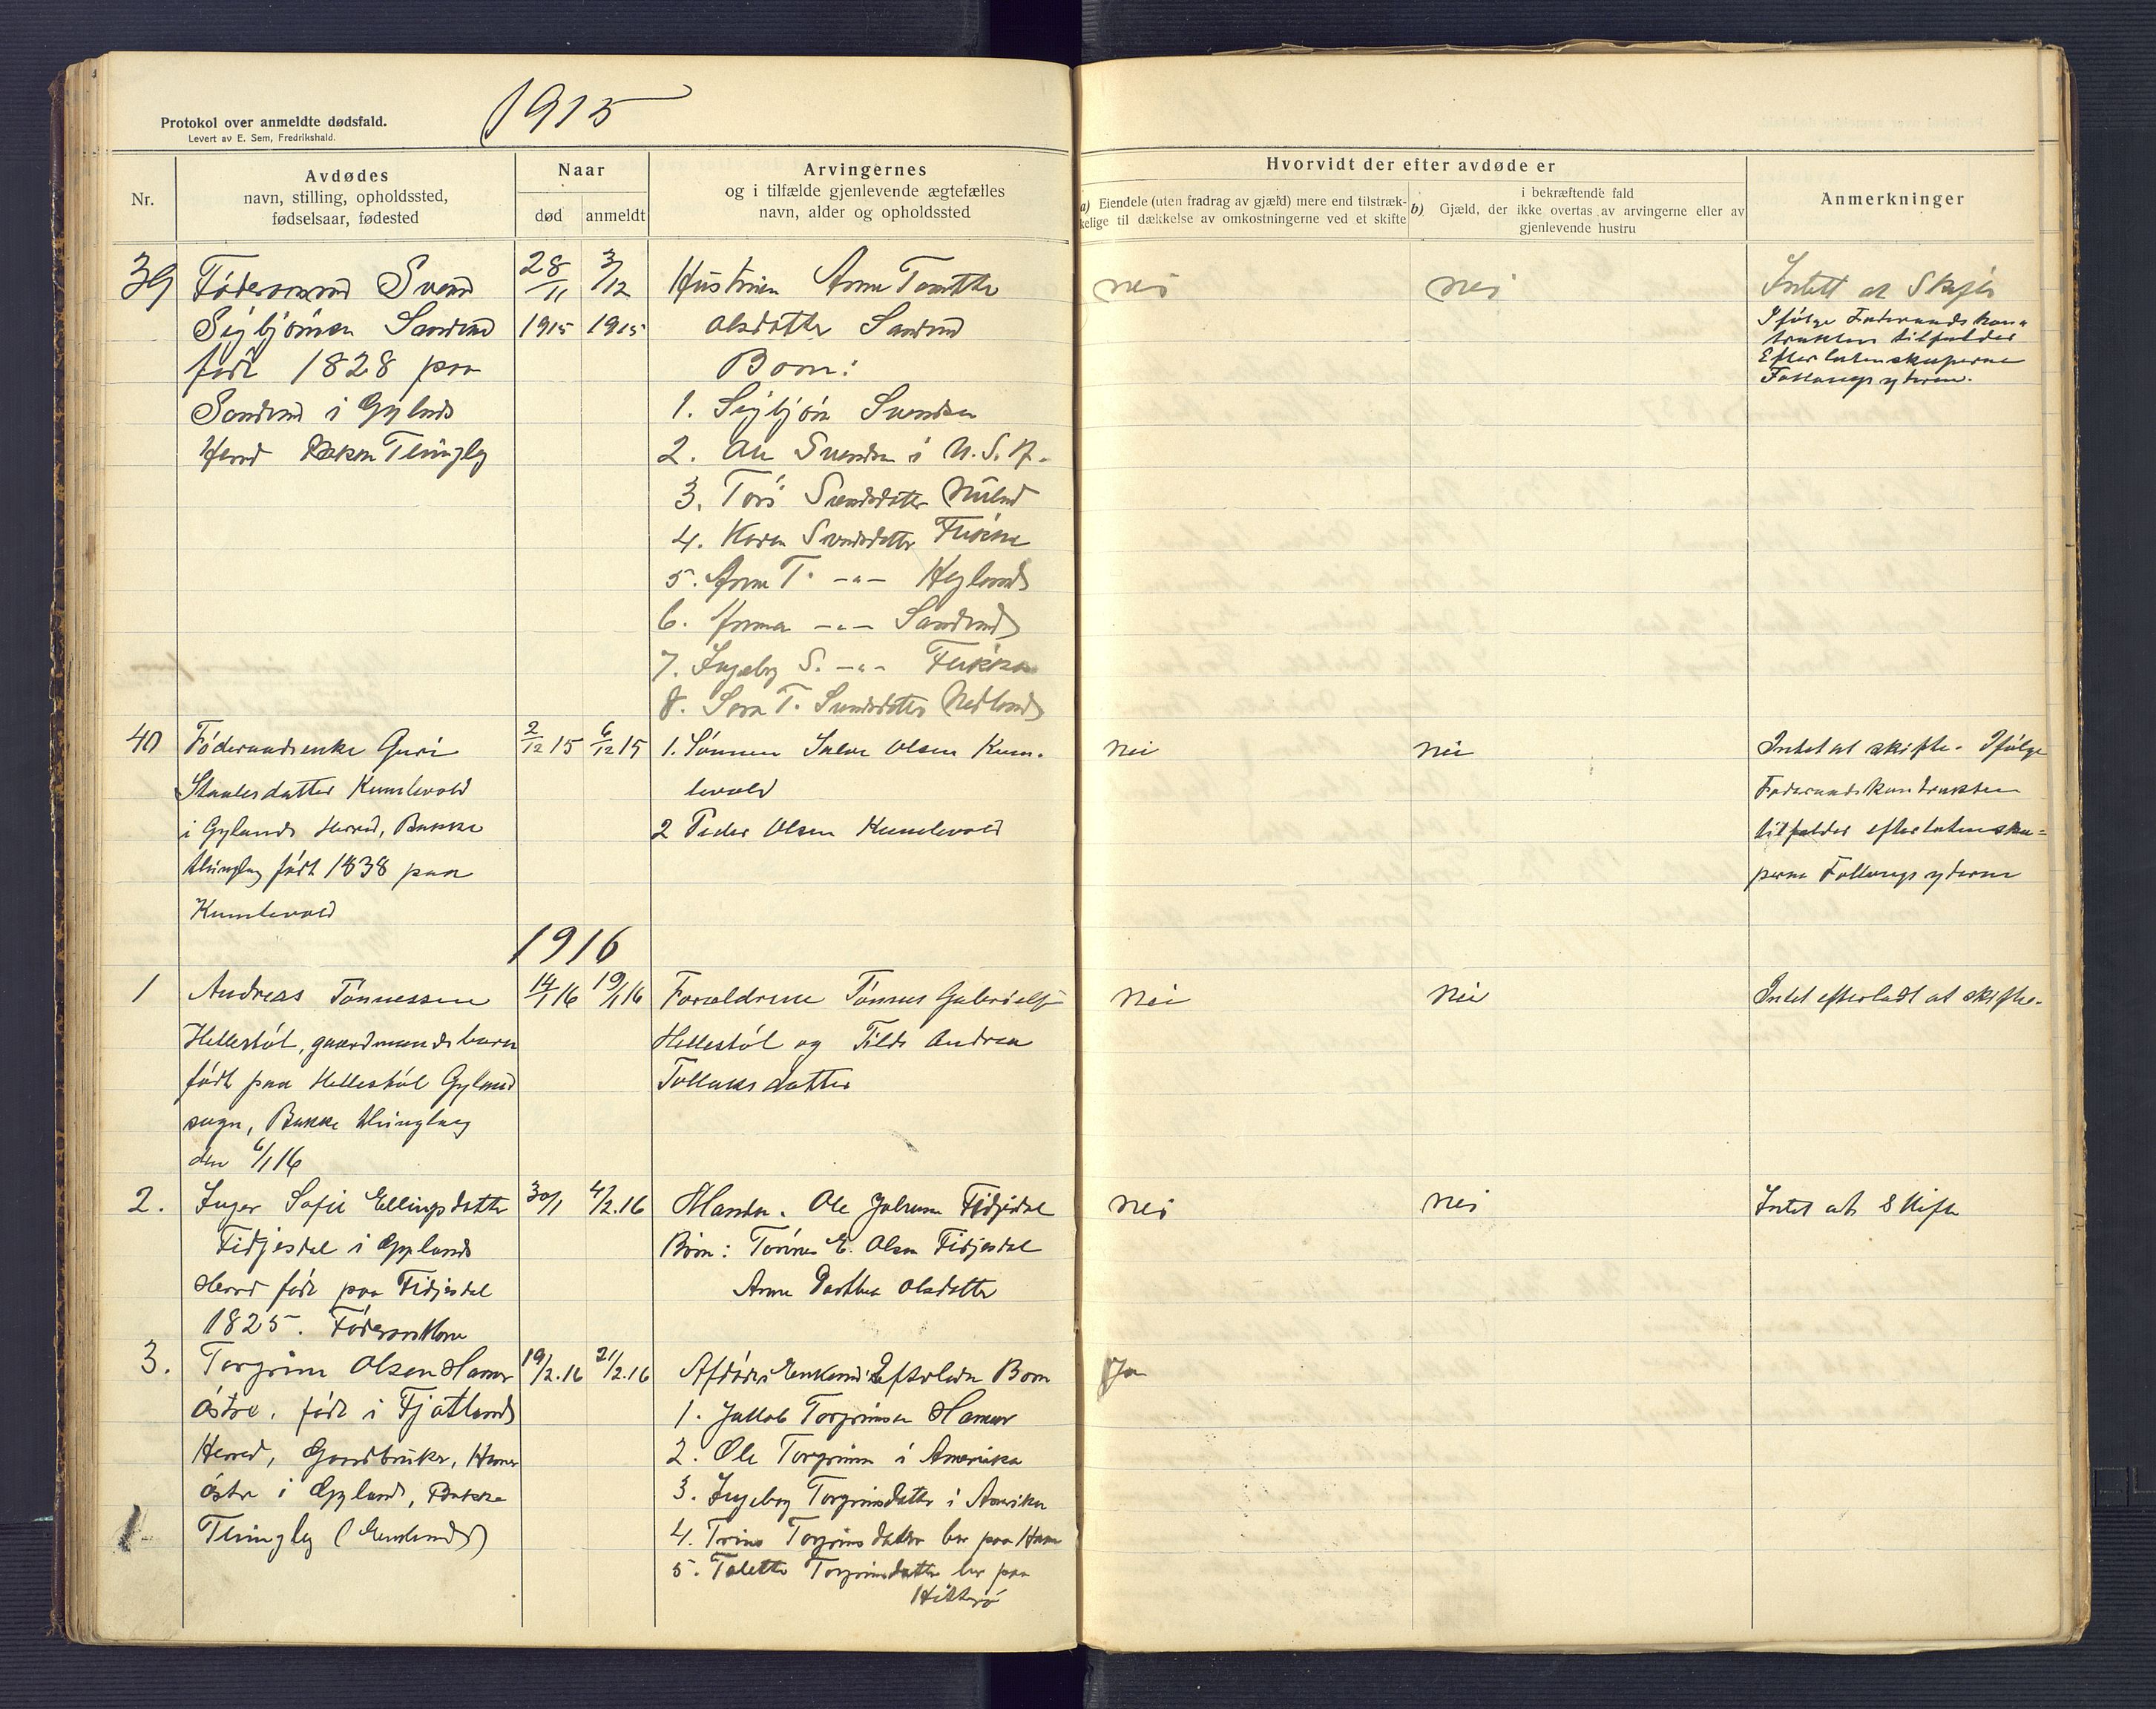 1915
Protokol over anmeldte dødsfald.
Levert av E. Sem, Fredrikshald.
Nr.
Avdødes
navn, stilling, opholdssted,
fødselsaar, fødested
Naar
død anmeldt
Arvingernes
og i tilfælde gjenlevende ægtefælles
navn, alder og opholdssted
Hvorvidt der efter avdøde er
a) Eiendele (uten fradrag av gjæld) mere end tilstræk-
kelige til dækkelse av omkostningerne ved et skifte
b) i bekræftende fald
Gjæld, der ikke overtas av arvingerne eller av
gjenlevende hustru
Anmerkninger
39
Føderaasmand Svend
Sigbjørnsen Sandvand
født 1828 paa
Sandvand i Gylands
Herred Bakke Thinglag
28/11 1915
3/12 1915
Hustruen Anne
Olsdatter Sandvand
Born:
1. Sigbjørn Svendsen
2. Ole Svendsen i U.S.A.
3. Svendsdatter
4. Karen Svendsdatter
5. Anne T. -"-
6. -"- Sandvand
7. Ingeborg S. -"-
8. T. Svendsdatter Nedland
nei
nei
Intett at Skifte
Ifølge Føderaadskon-
trakten tilfalder
Efterlatenskaperne
Follaugsyderne.
40
Føderaadsenke Guri
Staalesdatter Kumlevold
i Gylands Herred, Bakke
thinglag født 1838 paa
Kumlevold
2/12 15
6/12 15
1. Sønnen Salve Olsen Kum-
levold
2 Peder Olsen Kumlevold
Nei
Nei
Intet at skifte. Ifølge
Føderaadskontrakten
tilfalder efterlatenska-
perne Follaugsyderne
1916
1
Andreas Tønnessen
Hellestøl, gaardmandsbarn
født paa Hellestøl Gyland
sogn, Bakke thinglag
den 6/1 16
14/1 16
19/1 16
Forældrene Tønnes Gabrielsen
Hellestøl og Tilde Andrea
Tollaksdatter
Nei
Nei
Intet efterladt at skifte.
2.
Inger Sofie Ellingsdatter
Fidjesdal i Gylands
Herred født paa Fidjesdal
1825. Føderaadkone
30/1
4/2.16
Manden. Ole Fidjesdal
Børn: Tønnes E. Olsen Fidjesdal
Anne Dorthea Olsdatter
Nei
Nei
Intet at Skifte
3.
Torgrim Olsen Hamer
østre. født i Fjotlands
Herred, Gaardbruker, Hamer
østre i Gyland, Bakke
Thinglag (Enkemand)
19/2.16
21/2.16
Afdødes Enkemand Efterladte Born
1. Jakob Torgrimsen Hamer
2. Ole Torgrimsen i Amerika
3. Ingeborg Torgrimsdatter i Amerika
4. Trine Torgrimsdatter bor paa Hamer
5. Talette Torgrimsdatter bor paa
Hitterø
Ja